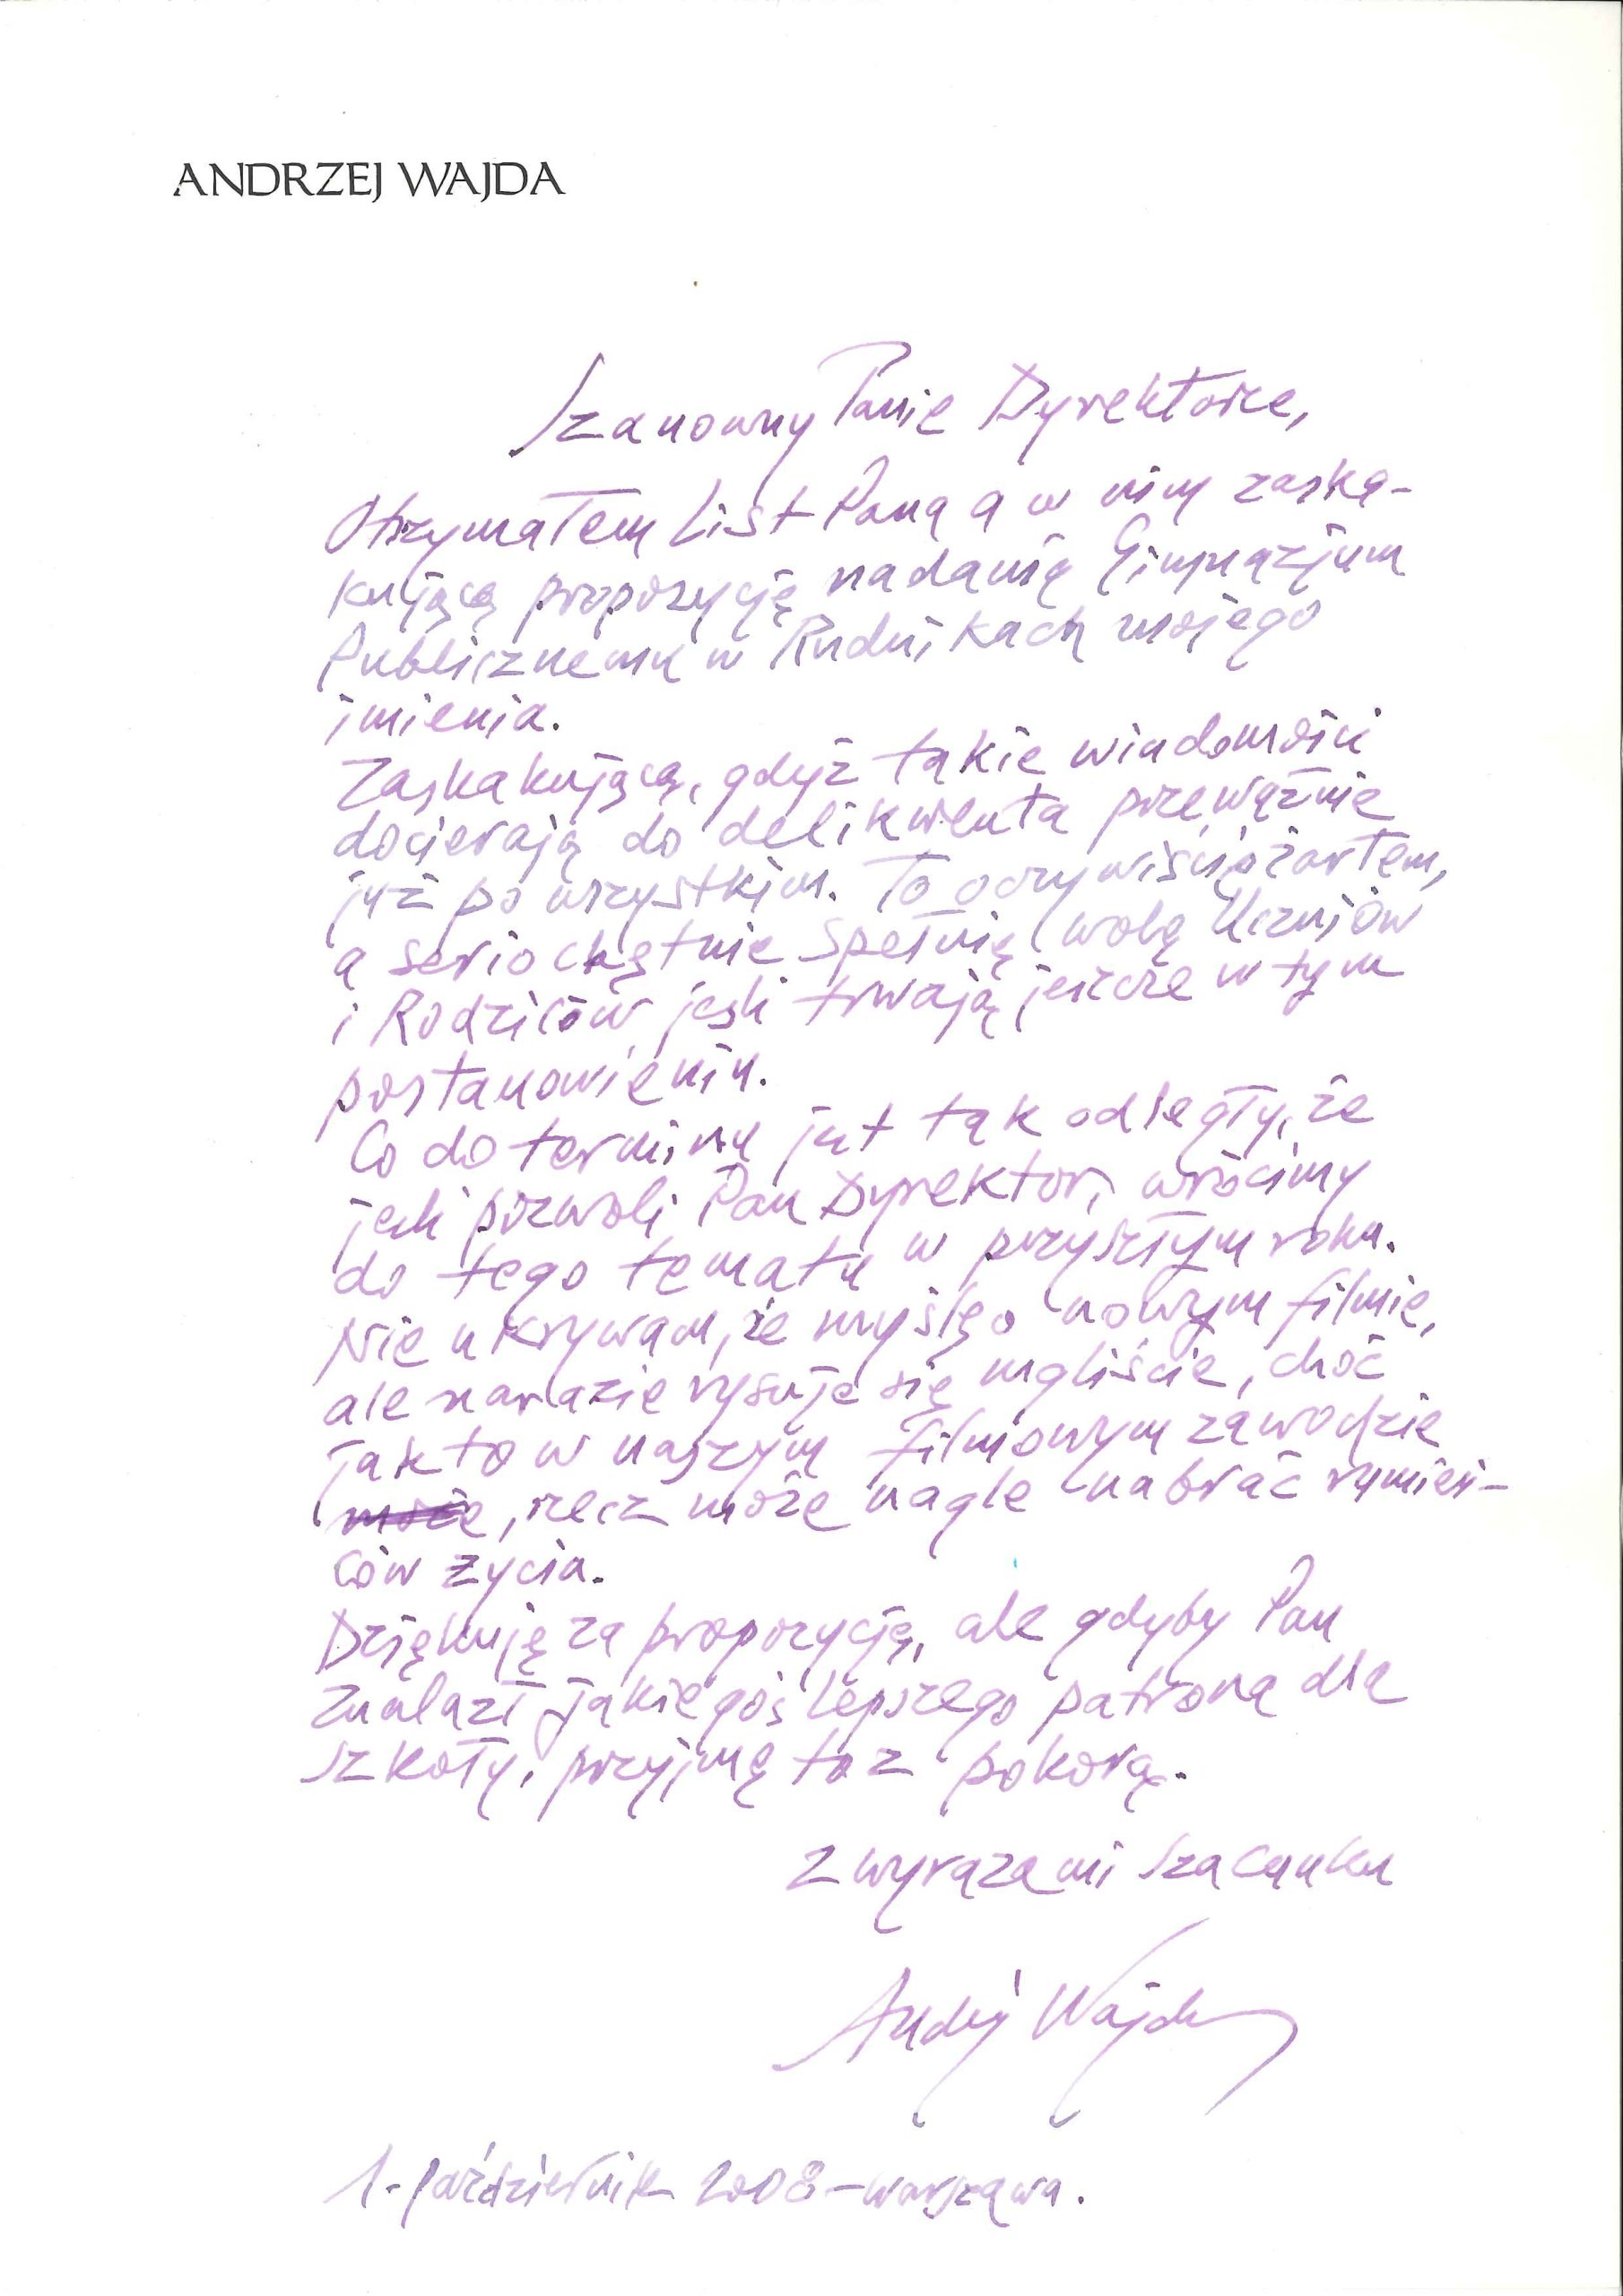 ANDRZEJ WAJDA
Szanowny Panie Dyrektorze,
Otrzymałem List Pana a w nim zaska-
kującą propozycję nadania Gimnazjum
Publicznemu w Rudnikach mojego
imienia.
Zaskakującą, gdyż takie wiadomości
docierają do delikwenta przeważnie
już po wszystkim. To oczywiście żartem,
a serio chętnie spełnię wolę Uczniów
i Rodziców jeśli trwają jeszcze w tym
postanowieniu.
Co do terminu jest tak odległy, że
jeśli pozwoli Pan Dyrektor, wrócimy
do tego tematu w przyszłym roku.
Nie ukrywam, że myślę o nowym filmie,
ale narazie rysuje się mgliście, choć
jak to w naszym filmowym zawodzie
może, rzecz może nagle nabrać rumień-
ców życia.
Dziękuję za propozycję, ale gdyby Pan
znalazł jakiegoś lepszego patrona dla
szkoły, przyjmę to z pokorą.
Z wyrazami szacunku
Andrzej Wajda
1. październik 2008 – Warszawa.